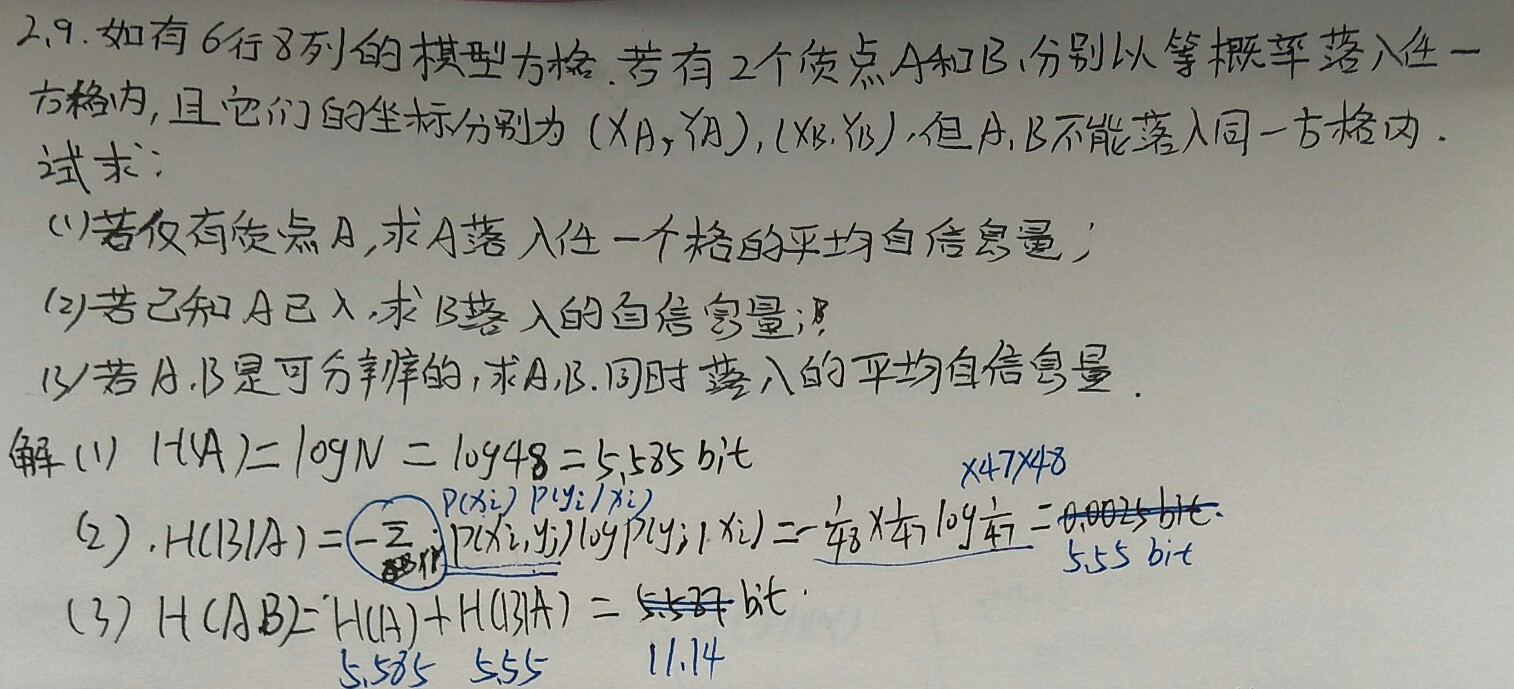 2.9. 如有6行8列的棋型方格.若有2个质点A和B,分别以等概率落入任一
方格内,且它们的坐标分别为(XA,YA),(XB,YB),但A,B不能落入同一方格内.
试求:
(1)若仅有质点A,求A落入任一个格的平均自信息量;
(2)若已知A已入,求B落入的自信息量;
(3)若A,B是可分辨的,求A,B.同时落入的平均自信息量.
解(1) H(A)=logN=log48=5.585bit
×47×48
P(xi) P(yi/xi)
(2).H(B|A)=-Σ P(xi,yj)logP(yj|xi)=-1/48×1/47 log 1/47=0.0025bit.
5.55 bit
(3) H(AB)=H(A)+H(B|A)=5.587bit.
5.585 5.55 11.14